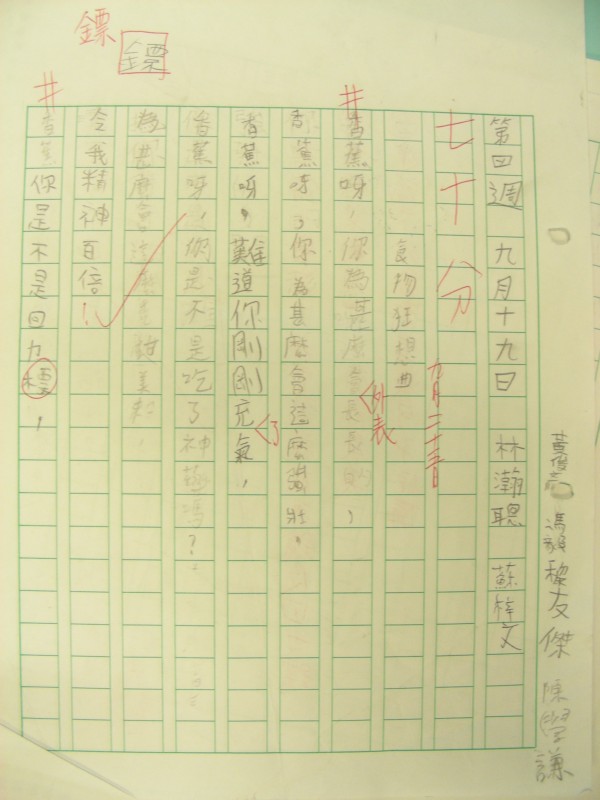 鏢
鏢
黎友傑 陳學謙
第四週 九月十九日 林瀚聰 蘇梓文
七十八分
九月二十三日
食物狂想曲
香蕉呀,你為甚麼會長長的,
外表
香蕉呀,你為甚麼會這麼黃壯。
香蕉呀,難道你剛剛充氣,
了
香蕉呀,你是不是吃了神藥嗎?
令我精神百倍!
香蕉你是不是回力標,